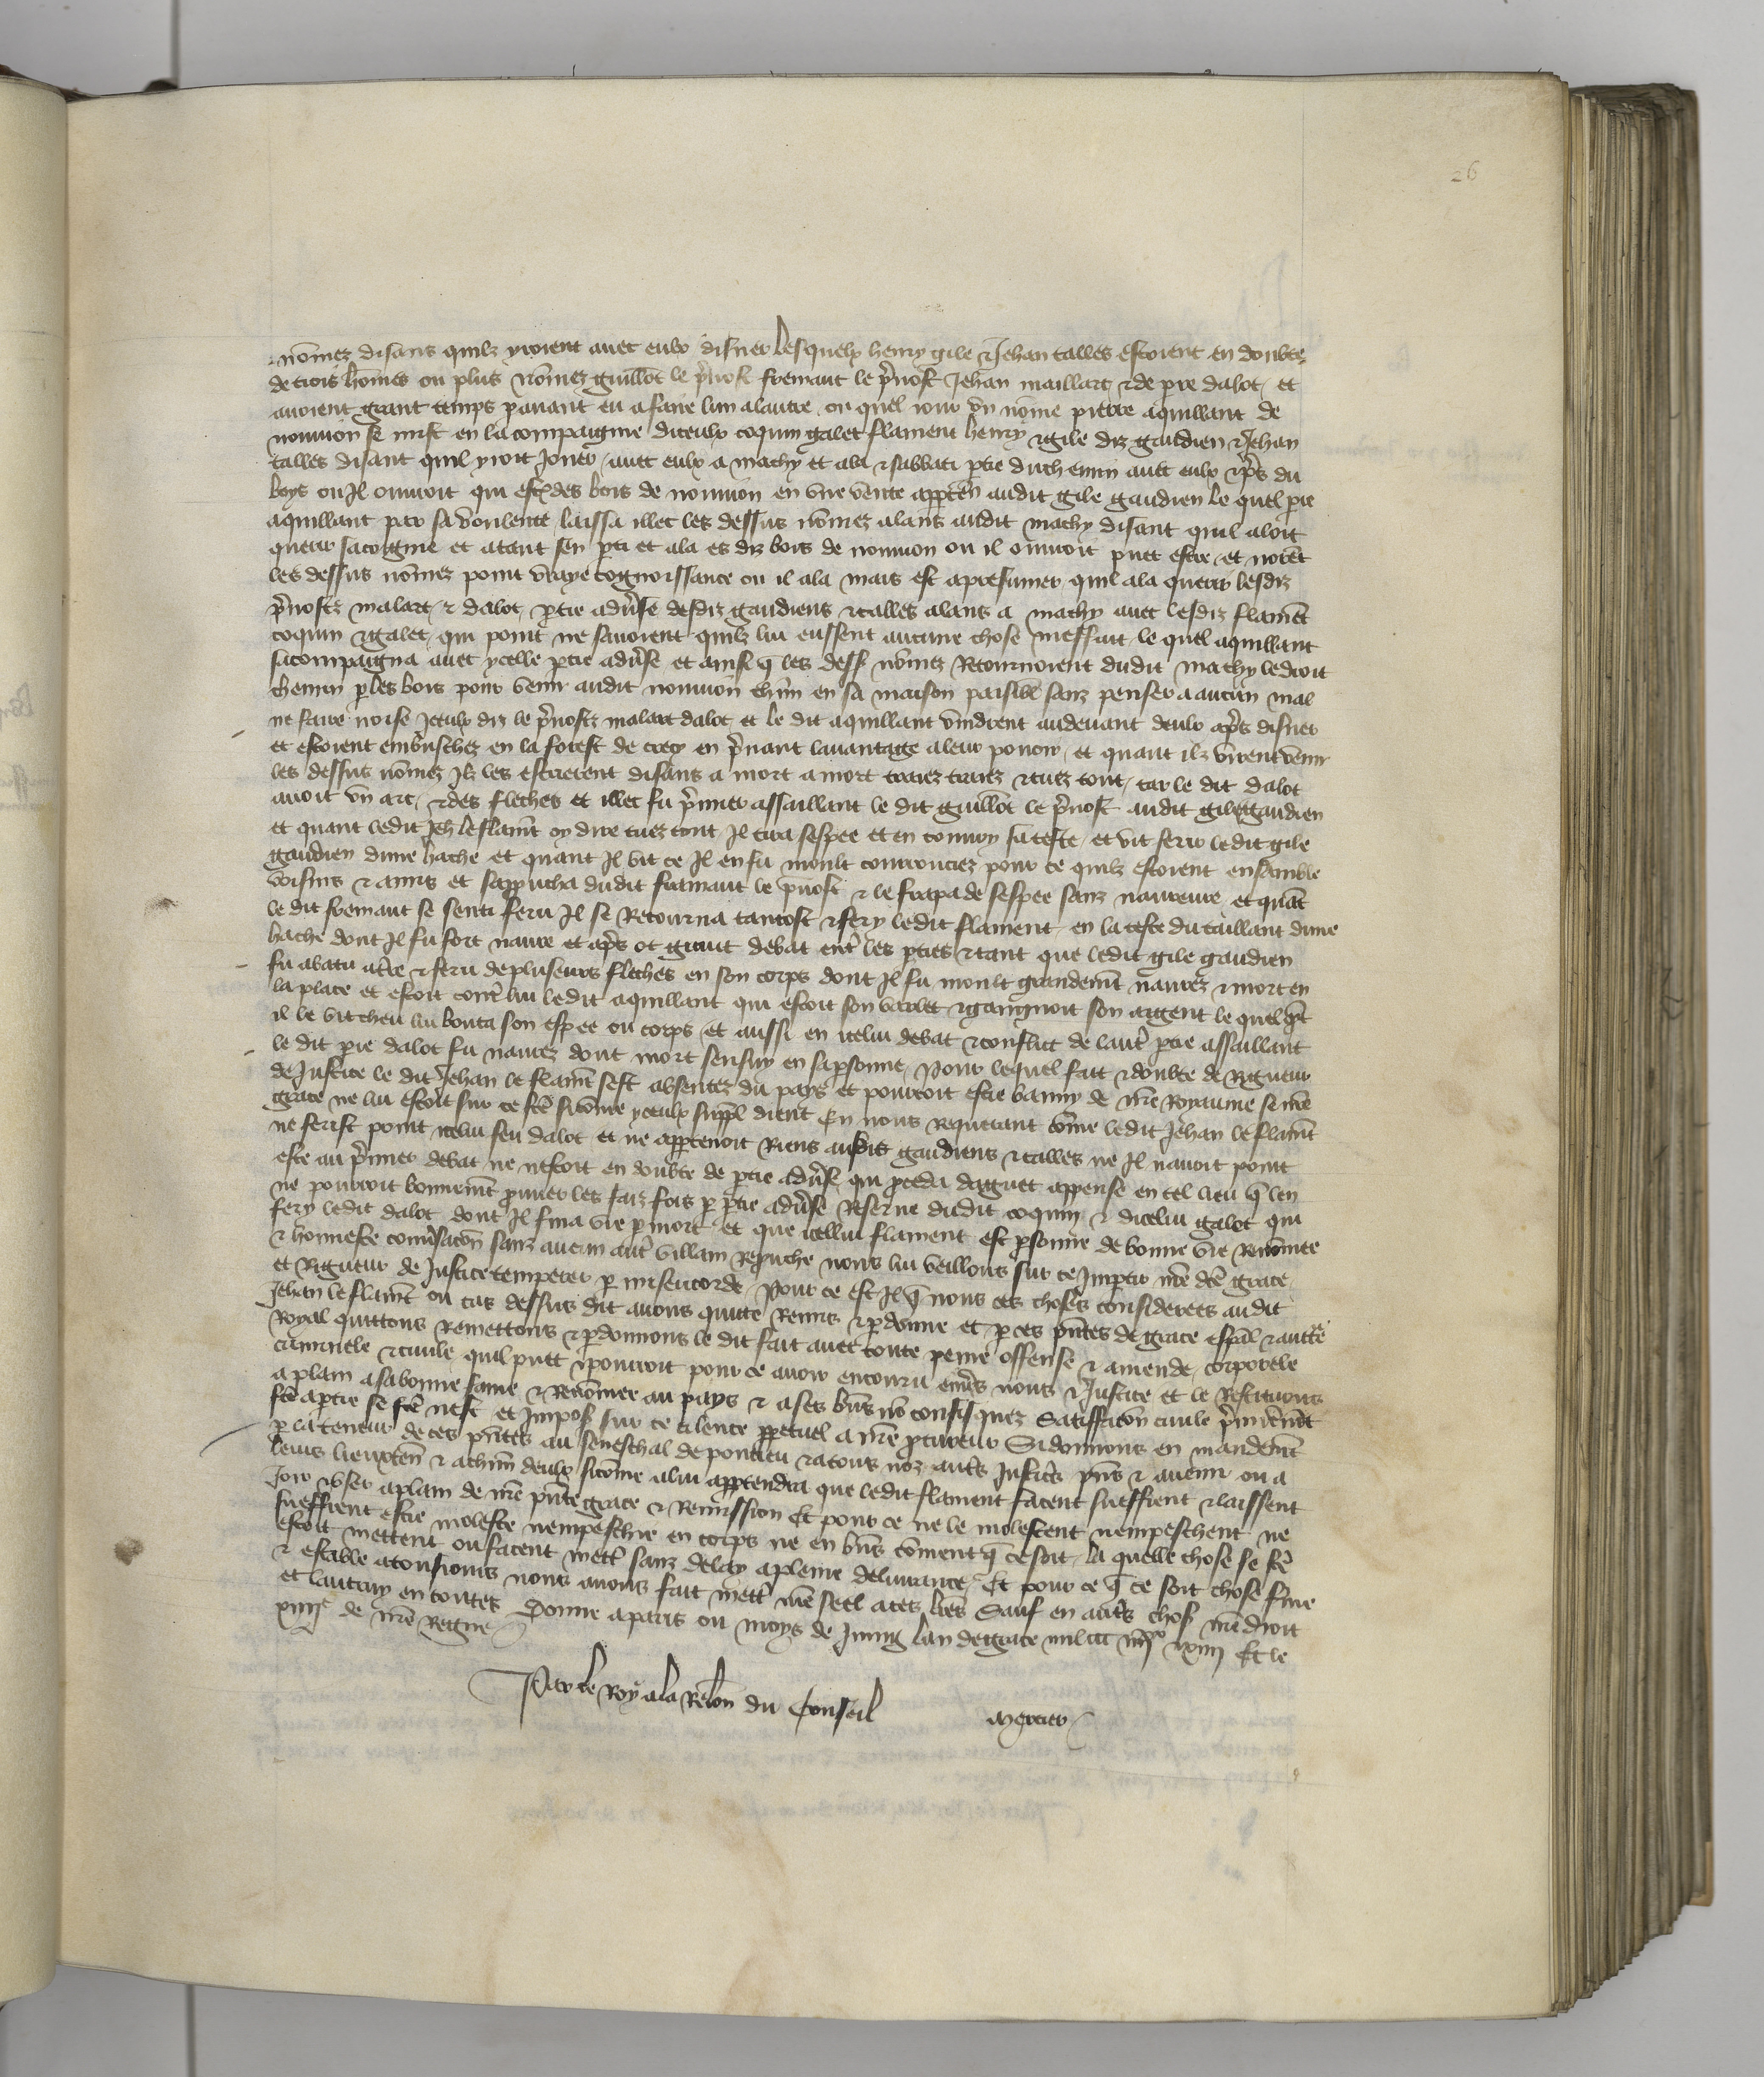 26
nōmez disans quilz yroient avec eulx disner lesquelx henry gile & Jehan talles estoient en doubte
de trois hōmes ou plus nōmez guillot le p̄vost fremaut le p̄vost Jehan maillart & de pre dalot et
avoient grant temps pavant eu a faire lun a lautre ou quel jour un nōme pierre aquillant de
nouvion se mist en la compaignie diceulx coquin galet flament henry & gile diz gaudien & Jehan
talles disant quil yroit jouer avec eulx a machy et ala & sabbati ptie du chemin avec eulx & p̄s du
boys ou Il ouvroit qui est des bois de nouvion en une vente apptēn audit gile gaudien le quel pre
aquillant par sa voulente laissa illec les dessus nōmez alans audit machy disant quil aloit
querir sa coignie et atant sen pti et ala es diz bois de nouvion ou il ouvroit puet estre et norēt
les dessus nōmez point vraye cognoissance ou il ala mais est a presumer quil ala querir lesdiz
p̄vostz malart & dalot ptie adv̄se desdiz gaudiens & talles alans a machy avec lesdiz flamēt
coquin & galet qui point ne savoient quilz lui eussent aucune chose meffait le quel aquillant
sacompaigna avec ycelle ptie adv̄se et ainsi q̄ les dess nōmez Retournoient dudit machy le droit
chemin p les bois pour venir audit nouvion chūn en sa maison paisible sanz penser a aucun mal
ne faire noise Iceulx diz le p̄vostz malart dalot et le dit aquillant vindrent audevant deulx ap̄s disner
et estoient embuschez en la forest de crecy en p̄nant lavantage a leur povoir et quant ilz virent venir
les dessus nōmez Ilz les escrierent disans a mort a mort traiez traiez & tuez tout car le dit dalot
avoit un arc & des fleches et illec fu p̄mier assaillant le dit guillot le p̄vost audit gile gaudien
et quant ledit Jeh le flamēt oy dire tuez tout Il tira sespee et en couvry sa teste et vit ferir ledit gile
gaudien dune hache et quant Il vit ce Il en fu moult courrouciez pour ce quilz estoient ensamble
voisins & amis et sapprucha dudit framaut le p̄vost & le frapa de sespee sanz navreure et quāt
le dit fremaut se senti feru Il se Retourna tantost & fery ledit flament en la teste du taillant dune
hache dont Il fu fort navre et ap̄s ot grant debat ent̄ les pties & tant que ledit gile gaudien
fu abatu a t̄re & feru de pluseurs fleches en son corps dont Il fu moult grandemēt navrez & mort en
la place et estoit cont̄ lui ledit aquillant qui estoit son varlet & gaingnoit son argent le quel qn̄t
il le vit cheu lui bouta son espee ou corps et aussi en icelui debat & conflict de laut̄ ptie assaillant
le dit pre dalot fu navrez dont mort sensuy en sa psonne Pour lequel fait & doubte de Rigueur
de Justice le dit Jehan le flamēt sest absentez du pays et pourroit estre banny de nr̄e Royaume se nr̄e
grace ne lui estoit sur ce fc̄e si cōme yceulx suppl dient En nous requerant cōme ledit Jehan le flamēt
ne ferist point icelui feu dalot et ne apptenoit Riens ausdis gaudiens & talles ne Il navoit point
este au p̄mier debat ne nestoit en doubte de ptie adv̄se qui pceda daguet appense en tel lieu q̄ len
ne pourroit bonnemēt prouver les faiz fors p ptie adv̄se Reserve dudit coquin & dicelui galot qui
fery ledit dalot dont Il fina vie p mort et que icellui flament est psonne de bonne vie Renōmee
& honneste conv̄sacōn sanz aucun aut̄ villain Repruche nous lui veillons sur ce Impartir nr̄e dc̄e grace
et Rigueur de Justice temperer p misericorde Pour ce est Il q̄ nous ces choses considerees audit
Jehan le flamēt ou cas dessus dit avons quitte Remis & pdonne et p ces pn̄tes de grace esp̄al & auct̄te
Royal quittons Remettons & pdonnons le dit fait avec toute peine offense & amende corporele
criminele & civile quil puet & pourroit pour ce avoir encouru env̄s nous & Justice et le Restituons
a plain a sa bonne fame & Renōmee au pays & a ses bn̄s nō confisquez Satisfacōn civile p̄mieremēt
fc̄e a ptie se fc̄e nest et Imposs sur ce silence ppetuel a nr̄e pcureur Si donnons en mandemēt
p la teneur de ces pn̄tes au seneschal de pontieu & a touz noz aut̄s Justic̄s pn̄s & avenir ou a
leurs lieuxten̄ & a chūn deulx si cōme a lui apptendra que ledit flament facent sueffrent & laissent
Joir & user a plain de nr̄e pn̄te grace & Remission Et pour ce ne le molestent nempeschent ne
sueffrent estre moleste nempeschie en corps ne en bn̄s cōment q̄ ce soit la quelle chose se fc̄e
estoit mettent ou facent mett̄ sanz delay a pleine delivrance Et pour ce q̄ ce soit chose ferme
& estable a tousiours nous avons fait mett̄ nr̄e seel a ces lr̄es Sauf en aut̄s chos̄ nr̄e droit
et lautruy en toutes Donne a paris ou moys de Juing lan de grace mil ccc iiiixx xiiij Et le
xiiije de nr̄e Regne
Par le Roy a la Relon du Conseil
Mercier